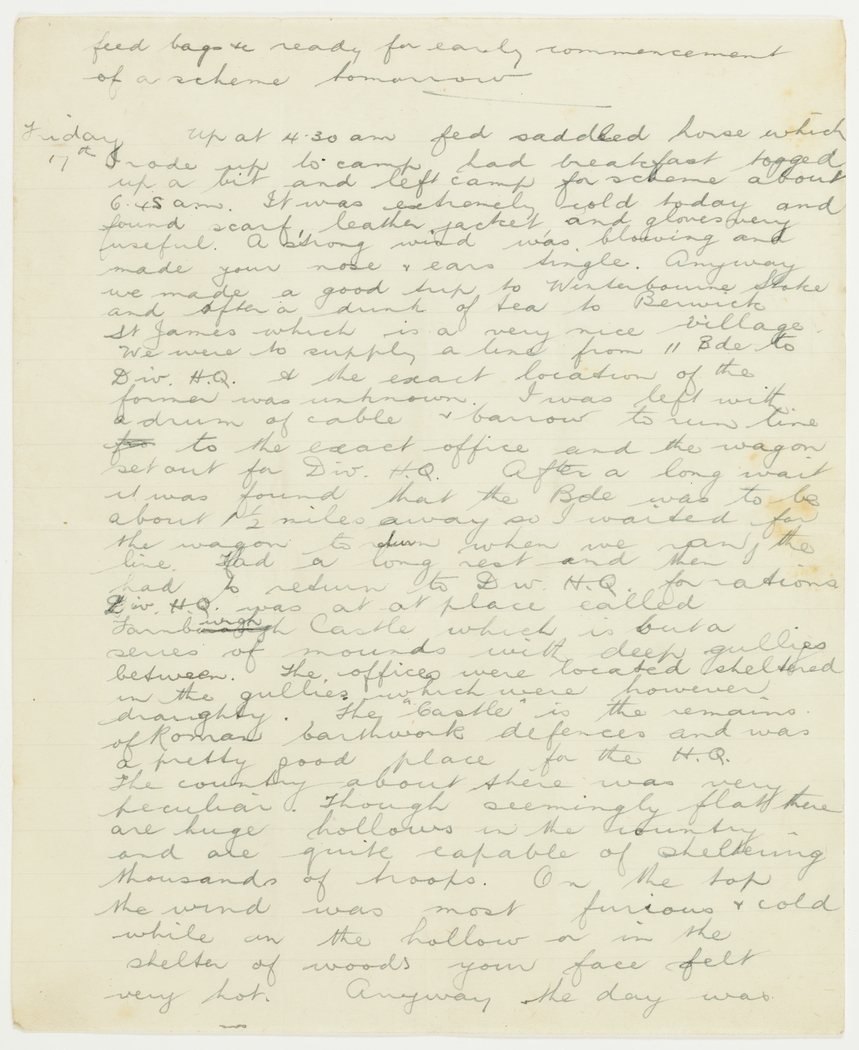 feed bags &c ready for early commencement
of a scheme tomorrow
Friday Up at 4.30 am fed saddled horse which
17th I rode up to camp had breakfast togged
up a bit and left camp for scheme about
6.45 a.m. It was extremely cold today and
found scarf, leather jacket and gloves very
useful. A strong wind was blowing and
made your nose & ears tingle. Anyway
we made a good trip to Winterbourne Stoke
and after a drink of tea to Berwick
St James which is a very nice village.
We were to supply a line from 11 Bde to
Div. H.Q. & the exact location of the
former was unknown. I was left with
a drum of cable & barrow to run line
to the exact office and the wagon
set out for Div. H.Q. After a long wait
it was found that the Bde was to be
about 1 1/2 miles away so I waited for
the wagon to return when we ran the
line. Had a long rest and then
had to return to Div. H.Q. for rations
Div. H.Q. was at at place called
Farnburgh Castle which is but a
series of mounds with deep gullies
between. The offices were located sheltered
in the gullies which were however
draughty. The "Castle" is the remains
of Roman Earthwork defences and was
a pretty good place for the H.Q.
The country about there was very
peculiar. Though seemingly flat there
are huge hollows in the country
and are quite capable of sheltering
thousands of troops. On the top
the wind was most furious & cold
while in the hollow or in the
shelter of woods your face felt
very hot. Anyway the day was